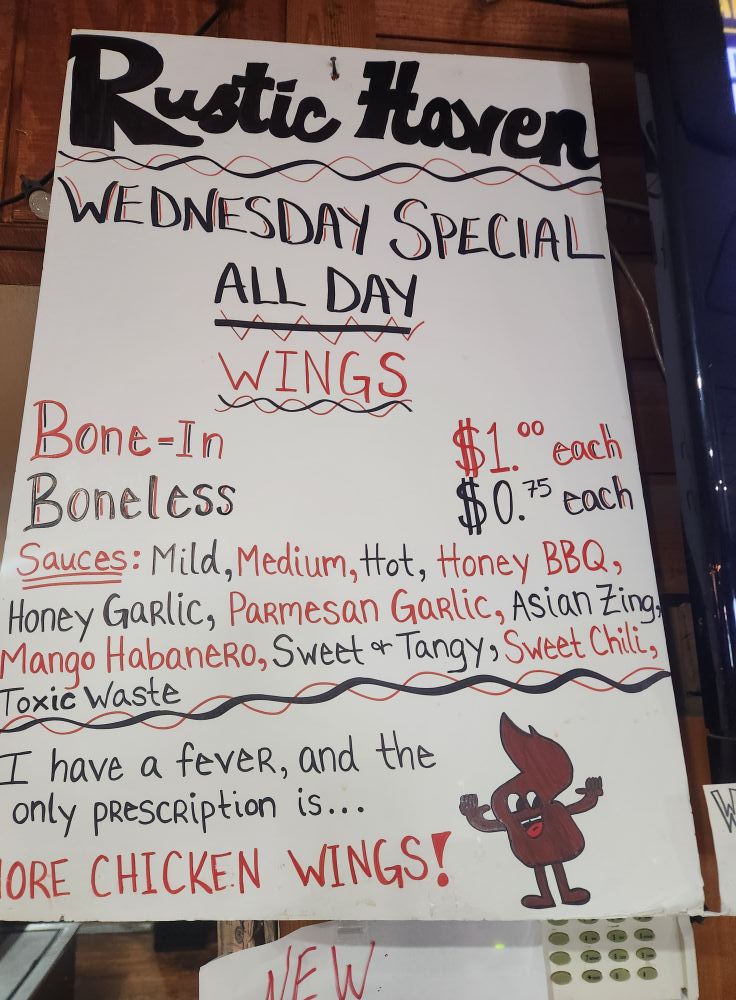 Rustic Haven
WEDNESDAY SPECIAL
ALL DAY
WINGS
Bone-In $1.00 each
Boneless $0.75 each
Sauces: Mild, Medium, Hot, Honey BBQ,
Honey Garlic, Parmesan Garlic, Asian Zing,
Mango Habanero, Sweet & Tangy, Sweet Chili,
Toxic Waste
I have a fever, and the
only prescription is...
ORE CHICKEN WINGS!
NEW